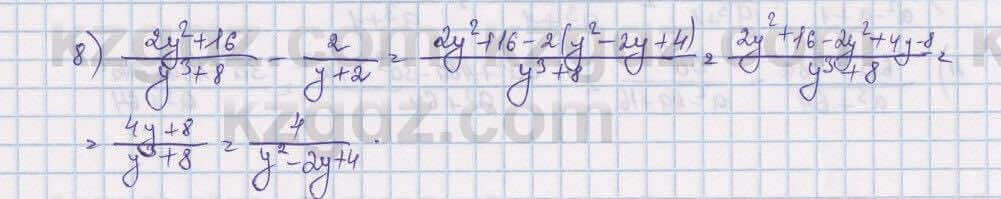 8) (2y²+16)/(y³+8) - 2/(y+2) = (2y²+16-2(y²-2y+4))/(y³+8) = (2y²+16-2y²+4y-8)/(y³+8) =
= (4y+8)/(y³+8) = 4/(y²-2y+4).
kzgdz.com